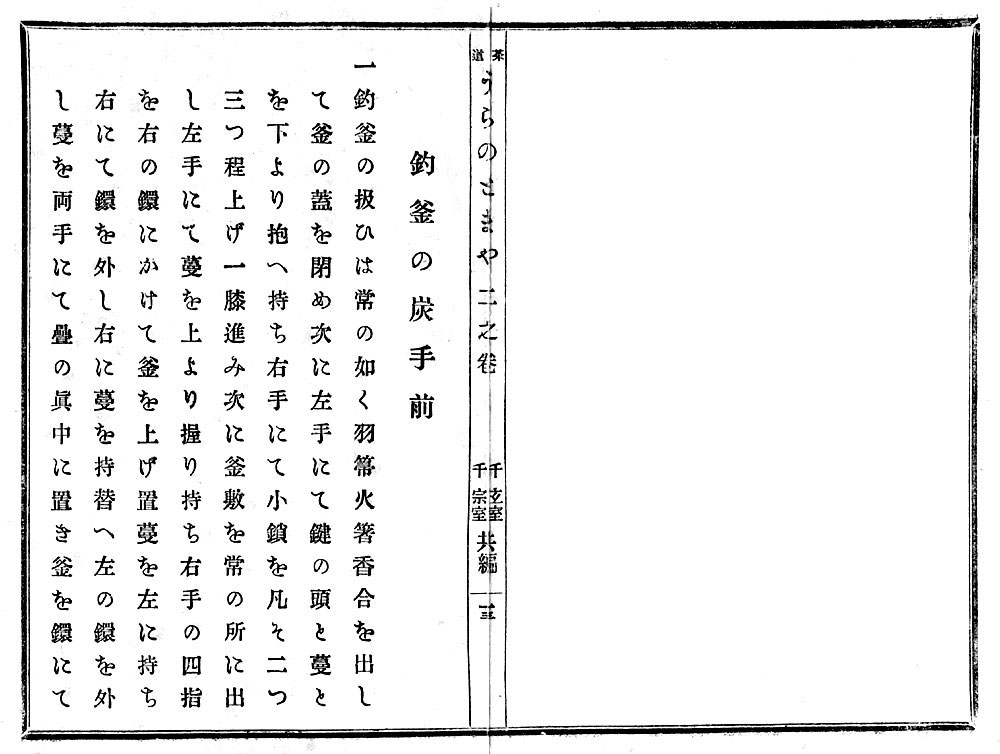 茶道
うらのとまや二之卷
千玄室
千宗室
共編
三
釣釜の炭手前
一釣釜の扱ひは常の如く羽箒火箸香合を出し
て釜の蓋を閉め次に左手にて鍵の頭と蔓と
を下より抱へ持ち右手にて小鎖を凡そ二つ
三つ程上げ一膝進み次に釜敷を常の所に出
し左手にて蔓を上より握り持ち右手の四指
を右の鐶にかけて釜を上げ置蔓を左に持ち
右にて鐶を外し右に蔓を持替へ左の鐶を外
し蔓を両手にて疊の眞中に置き釜を鐶にて